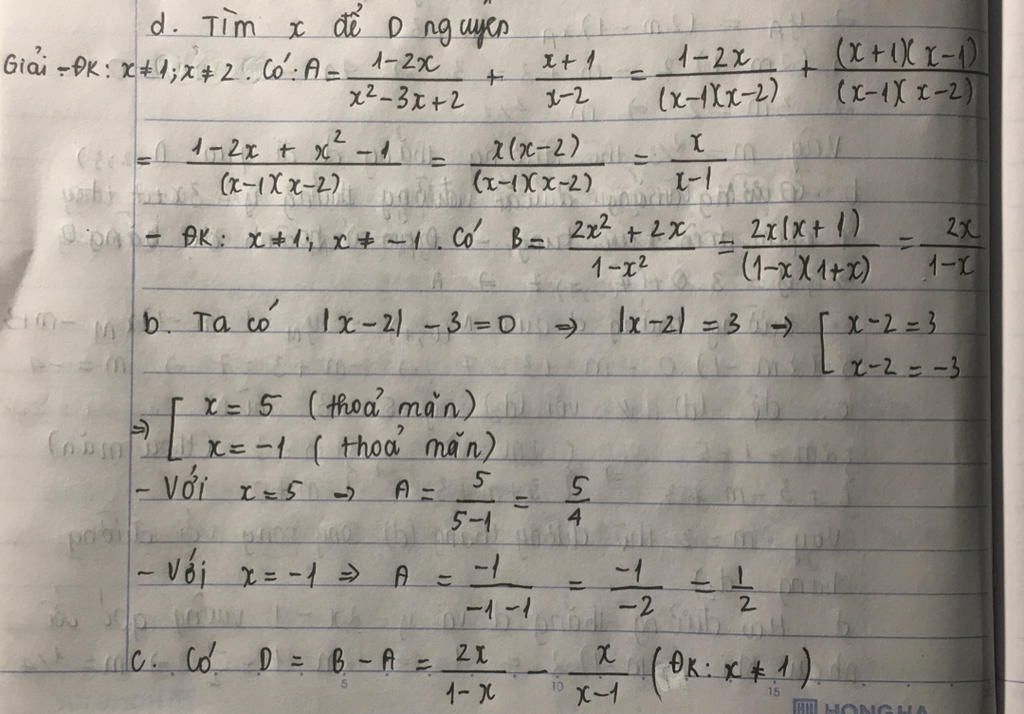 d. Tìm x để D nguyên
Giải - ĐK: x ≠ 1; x ≠ 2. Có: A = (1-2x)/(x²-3x+2) + (x+1)/(x-2) = (1-2x)/((x-1)(x-2)) + ((x+1)(x-1))/((x-1)(x-2))
= (1-2x + x² -1)/((x-1)(x-2)) = x(x-2)/((x-1)(x-2)) = x/(x-1)
- ĐK: x ≠ 1; x ≠ -1. Có B = (2x² + 2x)/(1-x²) = 2x(x+1)/((1-x)(1+x)) = 2x/(1-x)
b. Ta có |x-2| - 3 = 0 => |x-2| = 3 => [ x-2 = 3
x-2 = -3
=> [ x = 5 (thoả mãn)
x = -1 (thoả mãn)
- Với x = 5 => A = 5/(5-1) = 5/4
- Với x = -1 => A = -1/(-1-1) = -1/-2 = 1/2
c. Có D = B - A = 2x/(1-x) - x/(x-1) (ĐK: x ≠ 1)
5 10 15
HONG HA